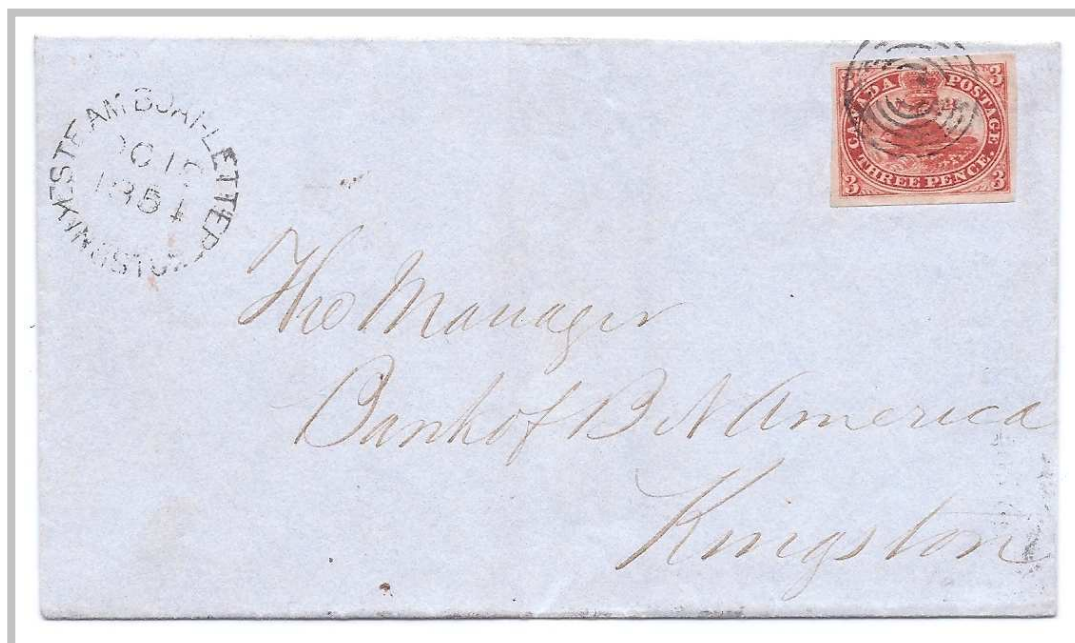 STEAM BOAT-LETTER
OC 1
1851
KINGSTON
CANADA POSTAGE
3 3
THREE PENCE
3 3
The Manager
Bank of B N America
Kingston